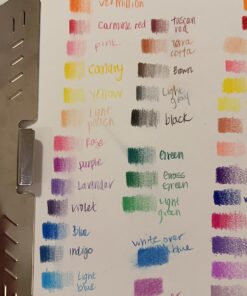 vermillion
Carmine red
pink
Canary
yellow
Light peach
Rose
purple
Lavendar
violet
Blue
indigo
Light
blue
Tuscan
red
Terra
cotta
Brown
Light
gray
black
Green
Grass
Green
Light
green
white over
blue